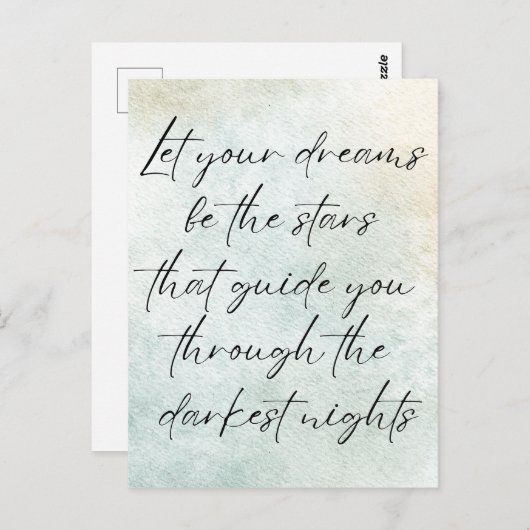 Let your dreams
be the stars
that guide you
through the
darkest nights